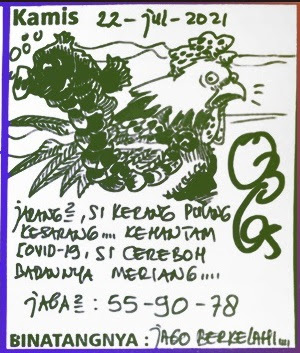 Kamis 22-jul-2021
JARANG2, SI KERANG PULANG
KESARANG.... KEHANTAM
COVID-19, SI CEREBOH
BADANNYA MERIANG....
JAGA2 : 55-90-78
BINATANGNYA : JAGO BERKELAHI...